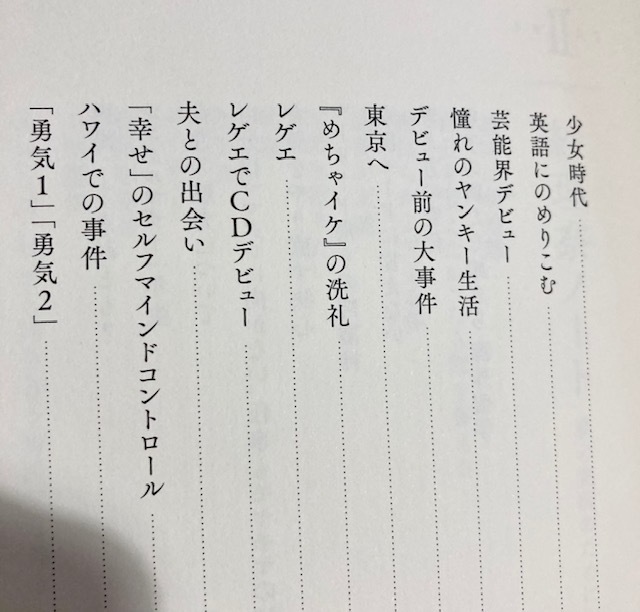 少女時代
英語にのめりこむ
芸能界デビュー
憧れのヤンキー生活
デビュー前の大事件
東京へ
『めちゃイケ』の洗礼
レゲエ
レゲエでCDデビュー
夫との出会い
「幸せ」のセルフマインドコントロール
ハワイでの事件
「勇気1」「勇気2」